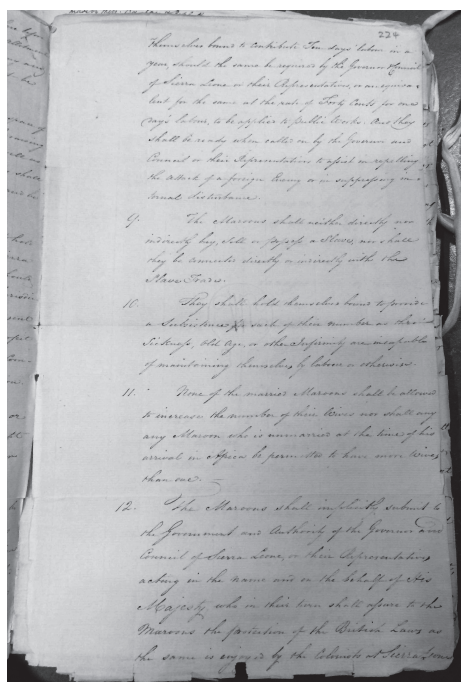 224
themselves bound to contribute Ten days labour in a
year, should the same be required by the Governor & Council
of Sierra Leone or their Representatives, or an equiva-
lent for the same at the rate of Forty Cents for one
day's labour, to be applied to public Works. And they
shall be ready when called on by the Governor and
Council or their Representatives to assist in repelling
the attack of a foreign Enemy or in suppressing in-
ternal disturbance.
9. The Maroons shall neither directly nor
indirectly buy, sell or possess a Slave, nor shall
they be connected directly or indirectly with the
Slave Trade.
10. They shall hold themselves bound to provide
a Subsistence for such of their number as thro'
Sickness, Old Age, or other Infirmity are incapable
of maintaining themselves by labour or otherwise.
11. None of the married Maroons shall be allowed
to increase the number of their Wives nor shall any
any Maroon who is unmarried at the time of his
arrival in Africa be permitted to have more Wives
than one.
12. The Maroons shall implicitly submit to
the Government and Authority of the Governor and
Council of Sierra Leone, or their Representatives
acting in the name and on the behalf of His
Majesty, who in their turn shall assure to the
Maroons the protection of the British Laws as
the same is enjoyed by the Colonists at Sierra Leone